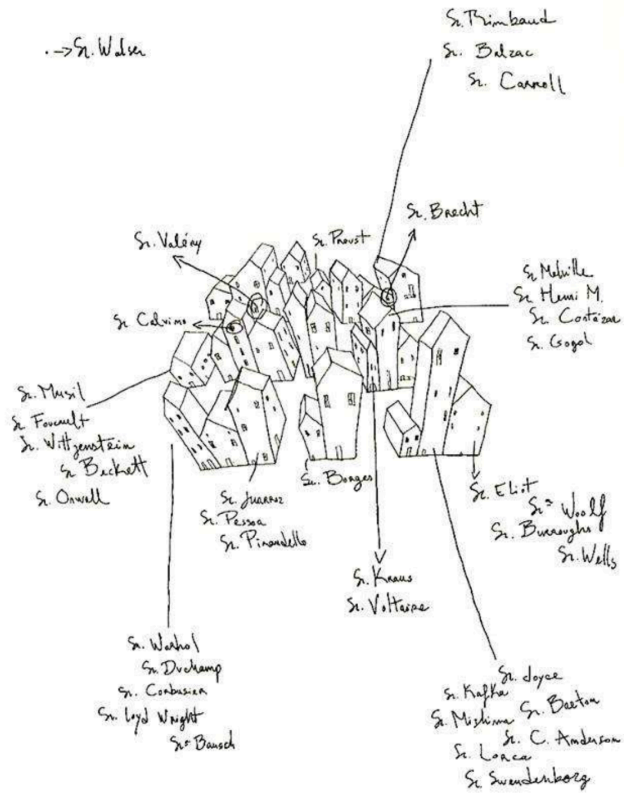 Sr. Rimbaud
Sr. Balzac
Sr. Carroll
Sr. Walser
Sr. Brecht
Sr. Valéry
Sr. Proust
Sr. Melville
Sr. Henri M.
Sr. Cortázar
Sr. Gogol
Sr. Calvino
Sr. Musil
Sr. Foucault
Sr. Wittgenstein
Sr. Beckett
Sr. Orwell
Sr. Juarroz
Sr. Pessoa
Sr. Pirandello
Sr. Borges
Sr. Eliot
Srª Woolf
Sr. Burroughs
Sr. Wells
Sr. Kraus
Sr. Voltaire
Sr. Warhol
Sr. Duchamp
Sr. Corbusier
Sr. Loyd Wright
Srª Bausch
Sr. Joyce
Sr. Kafka
Sr. Breton
Sr. Mishima
Sr. C. Anderson
Sr. Lorca
Sr. Swendenborg